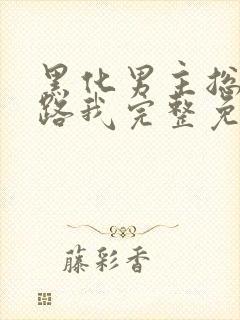 黑化男主总
路我完整免
藤彩香